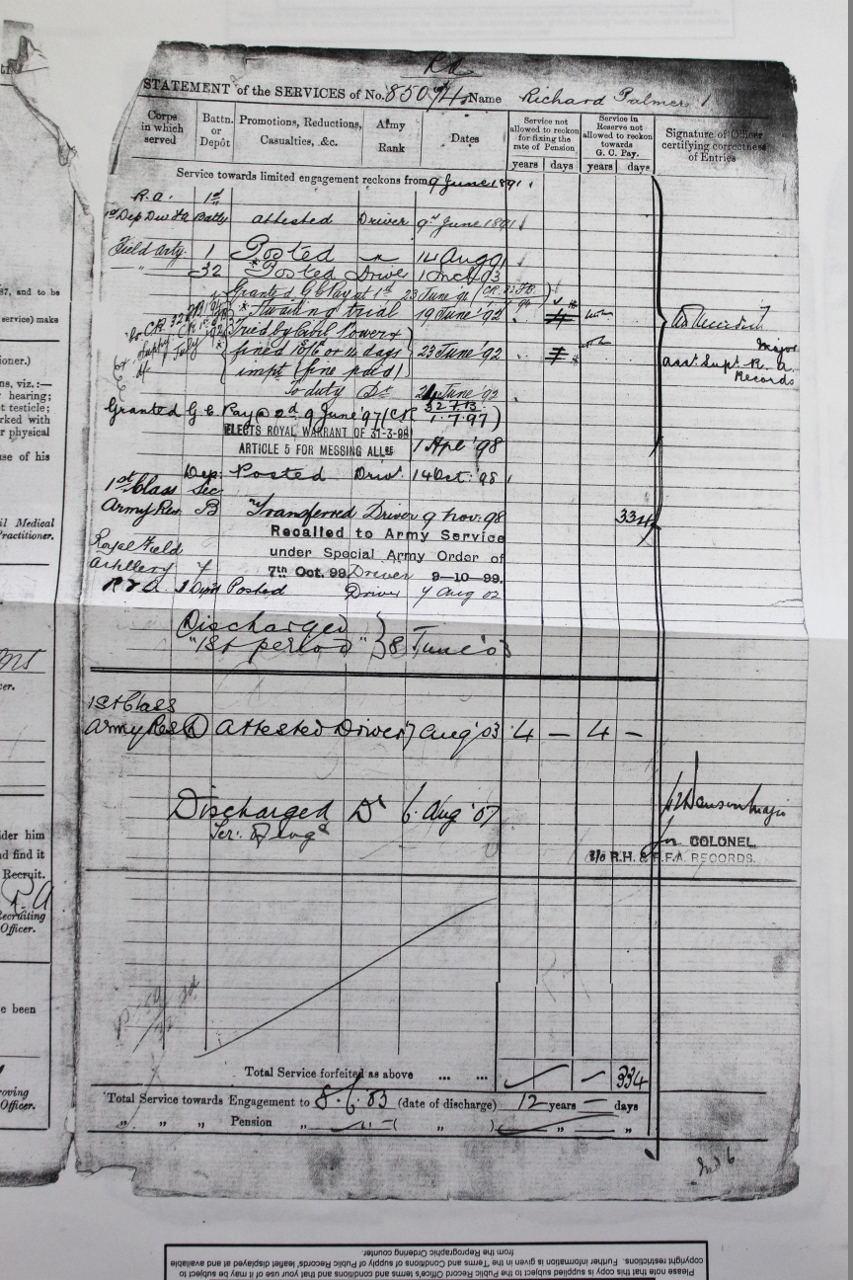 RA
STATEMENT of the SERVICES of No. 85074 Name Richard Palmer
Corps in which served
Battn. or Depôt
Promotions, Reductions, Casualties, &c.
Army Rank
Dates
Service not allowed to reckon for fixing the rate of Pension
years days
Service in Reserve not allowed to reckon towards G. C. Pay.
years days
Signature of Officer certifying correctness of Entries
Service towards limited engagement reckons from 9 June 1891
R.A. 1st
1st Dep Div RA Batty attested Driver 9th June 1891
Field Arty. 1 Posted 14 Aug 91
" 32 Posted Driver
Granted G C Pay at 1st 23 June 94
* Awaiting trial 19 June '92
Tried by Civil Power &
fined 18/6 or 14 days 23 June '92
impt (fine paid)
To duty Dr 24 June '92
Granted G C Pay @ 2d 9 June '97 (CR 32 1.7.97)
ELECTS ROYAL WARRANT OF 31-3-98
ARTICLE 5 FOR MESSING ALLce
1 Apl '98
Dep: Posted Driv. 14 Oct. '98
1st Class Sec.
Army Res. B Transferred Driver 9 Nov. 98 334
Recalled to Army Service
under Special Army Order of
7th Oct. 99. Driver 9-10-99.
Royal Field
Artillery
R F A 1 Depot Posted Driver 7 Aug 02
Discharged
"1st period" } 8 June '03
1st Class
Army Res D Attested Driver 7 Aug '03 4 — 4 —
Discharged Dr 6. Aug '07
Ter: of Engt
Major
asst. Supt. R. A.
Records
Major
for COLONEL.
R.H. & R.F.A. RECORDS.
Total Service forfeited as above ... ... 334
Total Service towards Engagement to 8.6.03 (date of discharge) 12 years — days
" " Pension " ( " ) " "
87, and to be
service) make
ioner.)
ns, viz.:—
hearing;
t testicle;
rked with
r physical
use of his
il Medical
Practitioner.
cer.
ider him
nd find it
Recruit.
Recruiting
Officer.
e been
roving
Officer.
Please note that this copy is supplied subject to the Public Record Office's terms and conditions and that your use of it may be subject to
copyright restrictions. Further information is given in the 'Terms and Conditions of supply of Public Records' leaflet displayed at and available
from the Reprographic Ordering counter.